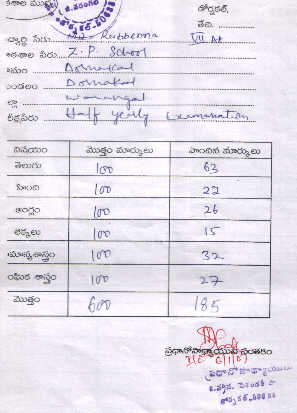 డోర్నకల్,
తేది
విద్యార్థి పేరు Rubbenna VII
పాఠశాల పేరు Z.P. School
గ్రామం Dornakal
మండలం Dornakal
జిల్లా Warangal
పరీక్షపేరు Half yearly Examination
విషయం మొత్తం మార్కులు పొందిన మార్కులు
తెలుగు 100 63
హింది 100 22
ఇంగ్లం 100 26
లెక్కలు 100 15
సామాన్యశాస్త్రం 100 32
సాంఘిక శాస్త్రం 100 27
మొత్తం 600 185
ప్రధానోపాధ్యాయుని సంతకం
ప్రధానోపాధ్యాయులు